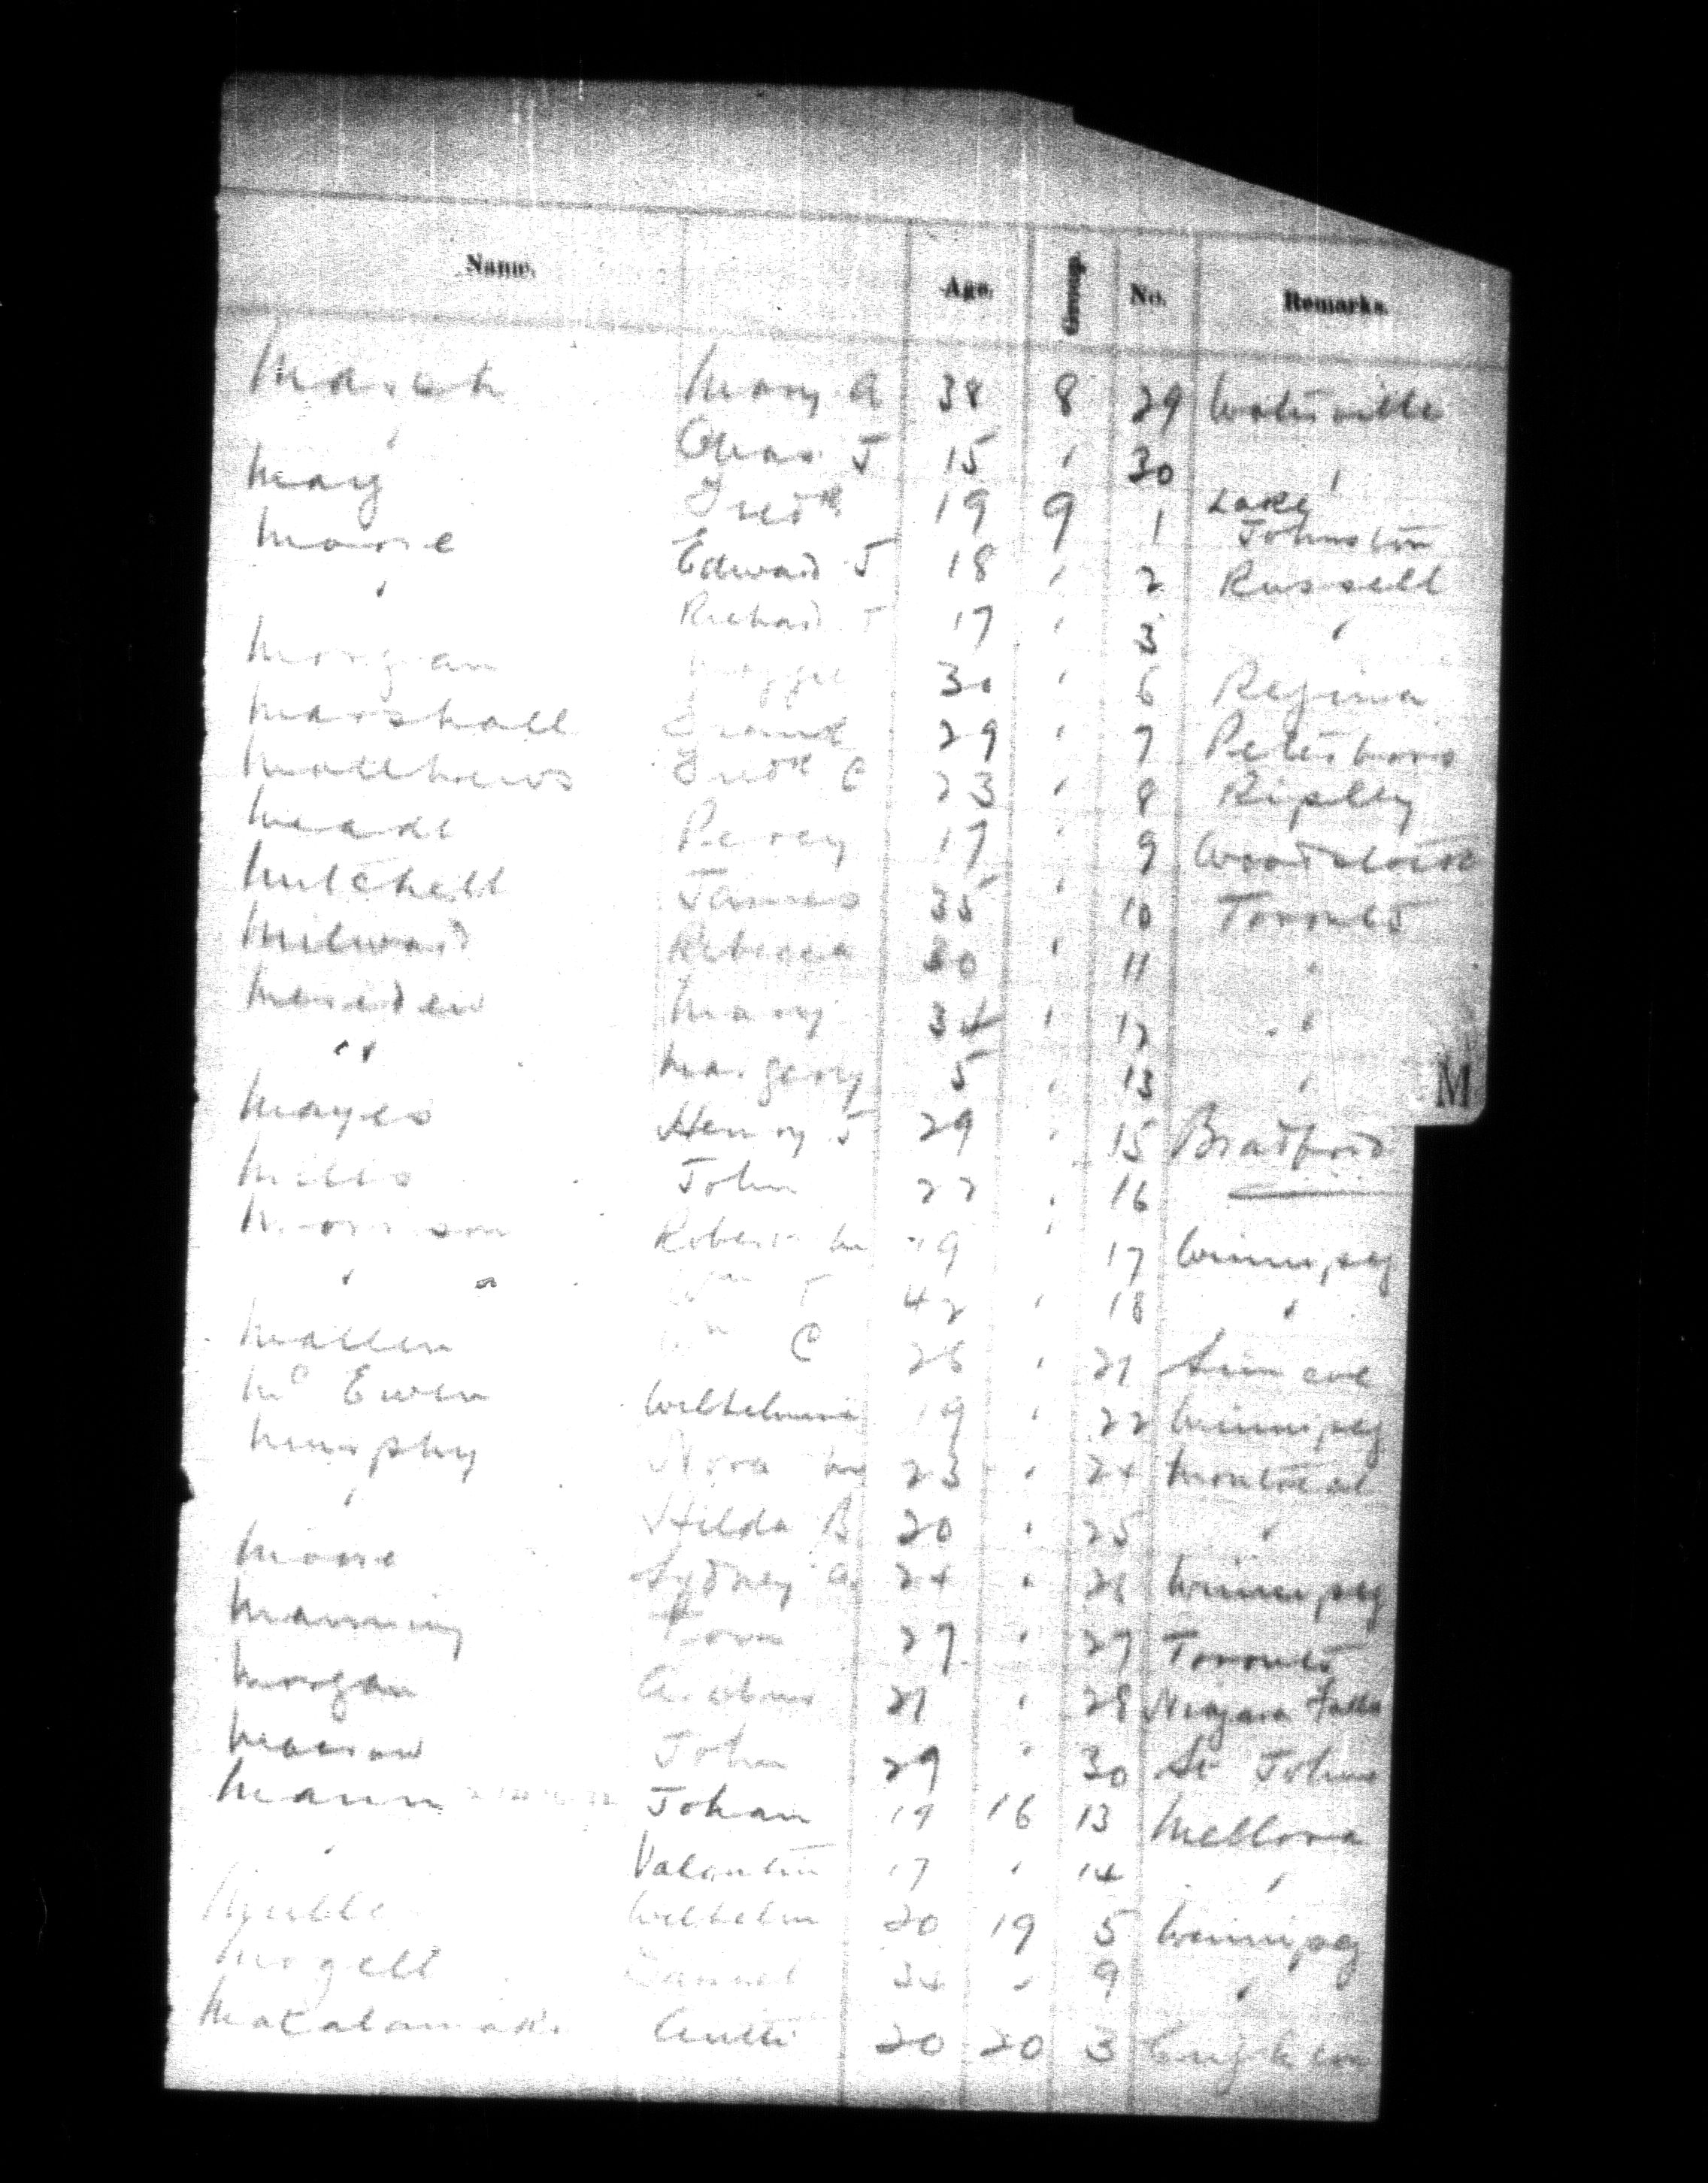 Name. Age. Group. No. Remarks.
March Mary A 38 8 29 Waterville
" Chas J 15 " 30 "
May Fredk 19 9 1 Lake Johnston
Moore Edward J 18 " 2 Russell
" Richard T 17 " 3 "
Morgan 30 " 6 Regina
Marshall Frank 29 " 7 Peterboro
Matthews Fredk C 23 " 8 Ripley
Meade Percy 17 " 9 Woodstock
Mitchell James 35 " 10 Toronto
Milward Rebecca 30 " 11 "
Mary 34 " 12 "
" Margery 5 " 13 "
M
Mayes Henry J 29 " 15 Bradford
Mills John 22 " 16
Morrison Robert M 19 " 17 Winnipeg
" Wm T 42 " 18 "
Mallen Wm C 26 " 21 Simcoe
Mc Ewen Wilhelmina 19 " 22 Winnipeg
Murphy Nora M 23 " 24 Montreal
" Hilda B 20 " 25 "
Moore Sydney A. 24 " 26 Winnipeg
Manning 27 " 27 Toronto
Morgan 21 " 28 Niagara Falls
John 29 " 30 St Johns
Mann Johan 19 16 13 Mellona
" Valentin 17 " 14 "
Wilhelm 20 19 5 Winnipeg
Mogell 34 " 9 "
Antti 20 20 3